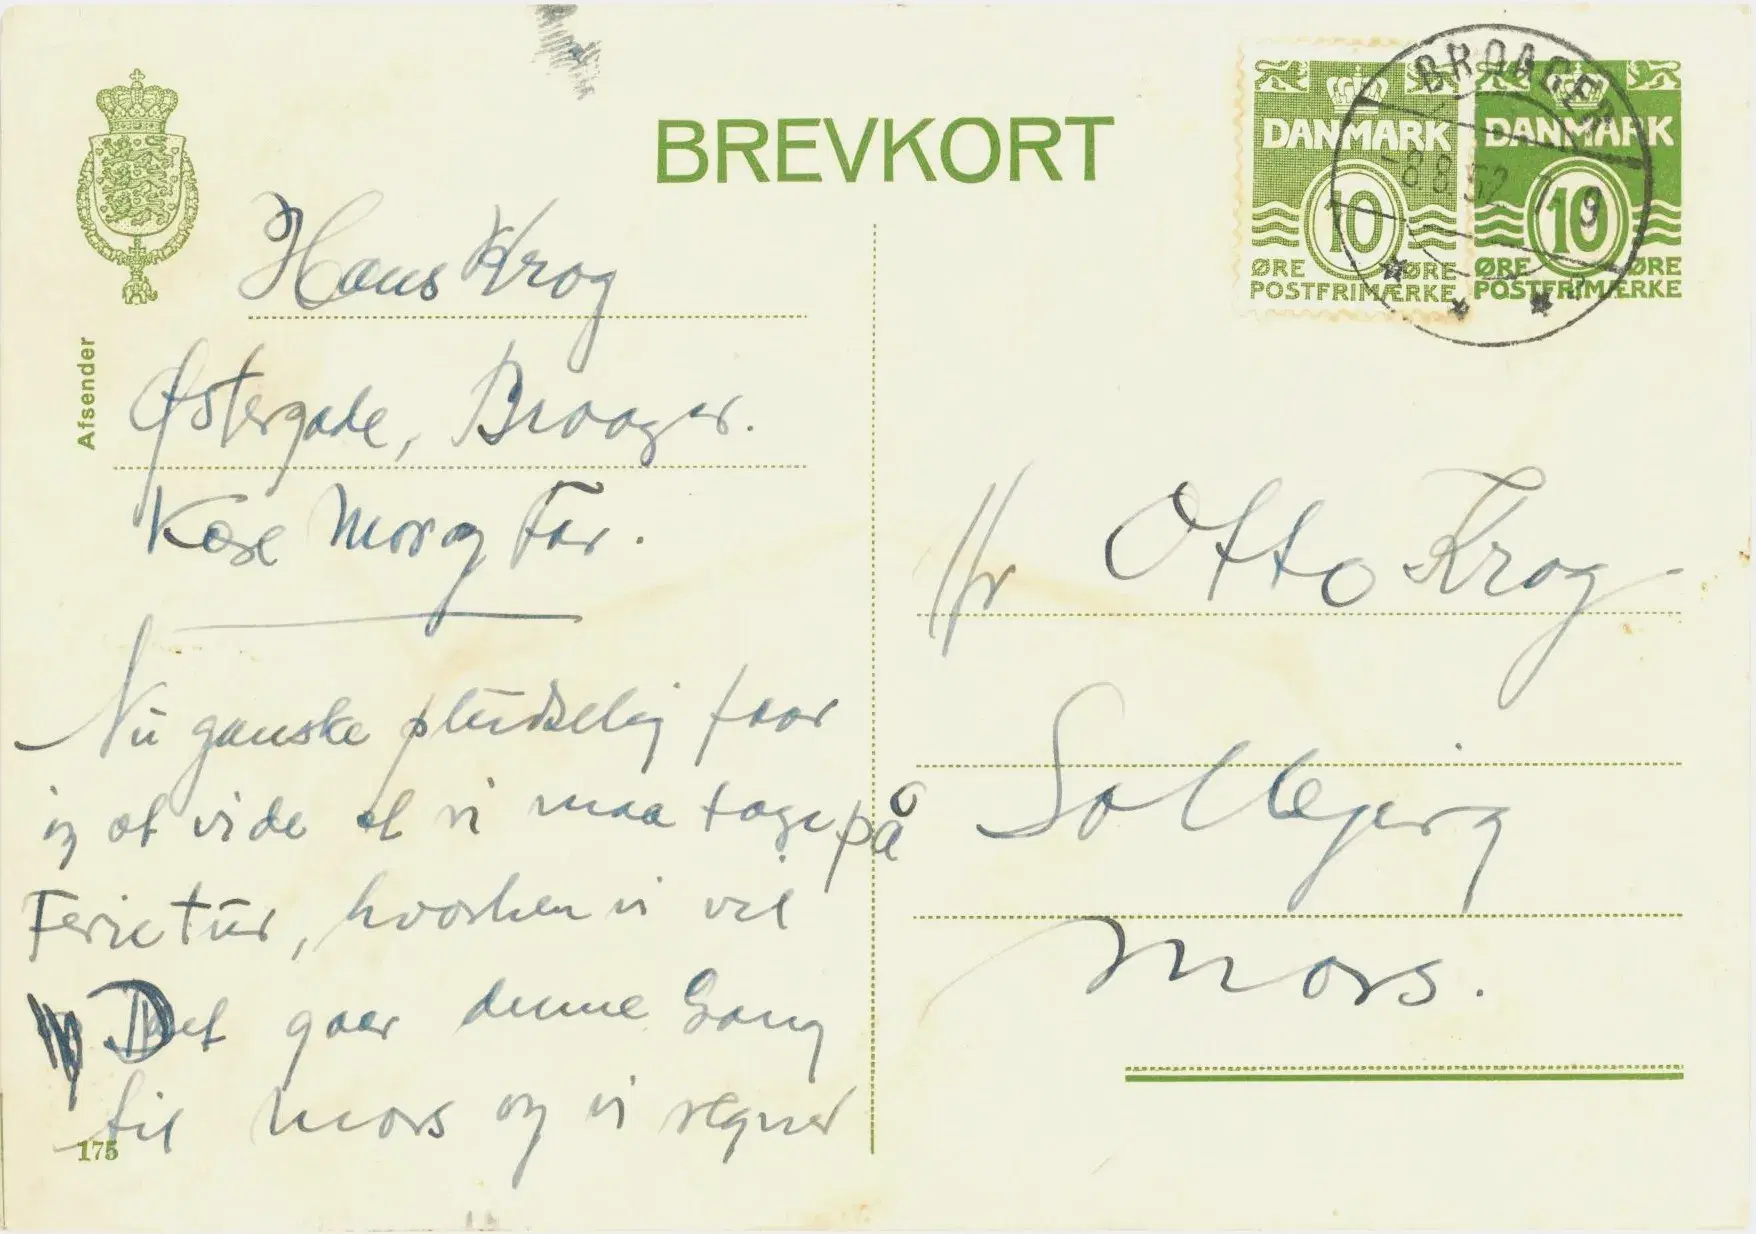 BREVKORT
DANMARK
10
ØRE ØRE
POSTFRIMÆRKE
DANMARK
10
ØRE ØRE
POSTFRIMÆRKE
BROAGER
-8.8.52 7-9
Afsender
Hans Krog
Østergade, Broager.
Kære Mor og Far.
Nu ganske pludselig faar
jeg at vide at vi maa tage på
Ferietur, hvorhen vi vil
Det gaar denne Gang
til Mors og vi regner
175
Hr Otto Krog
Solbjerg
Mors.